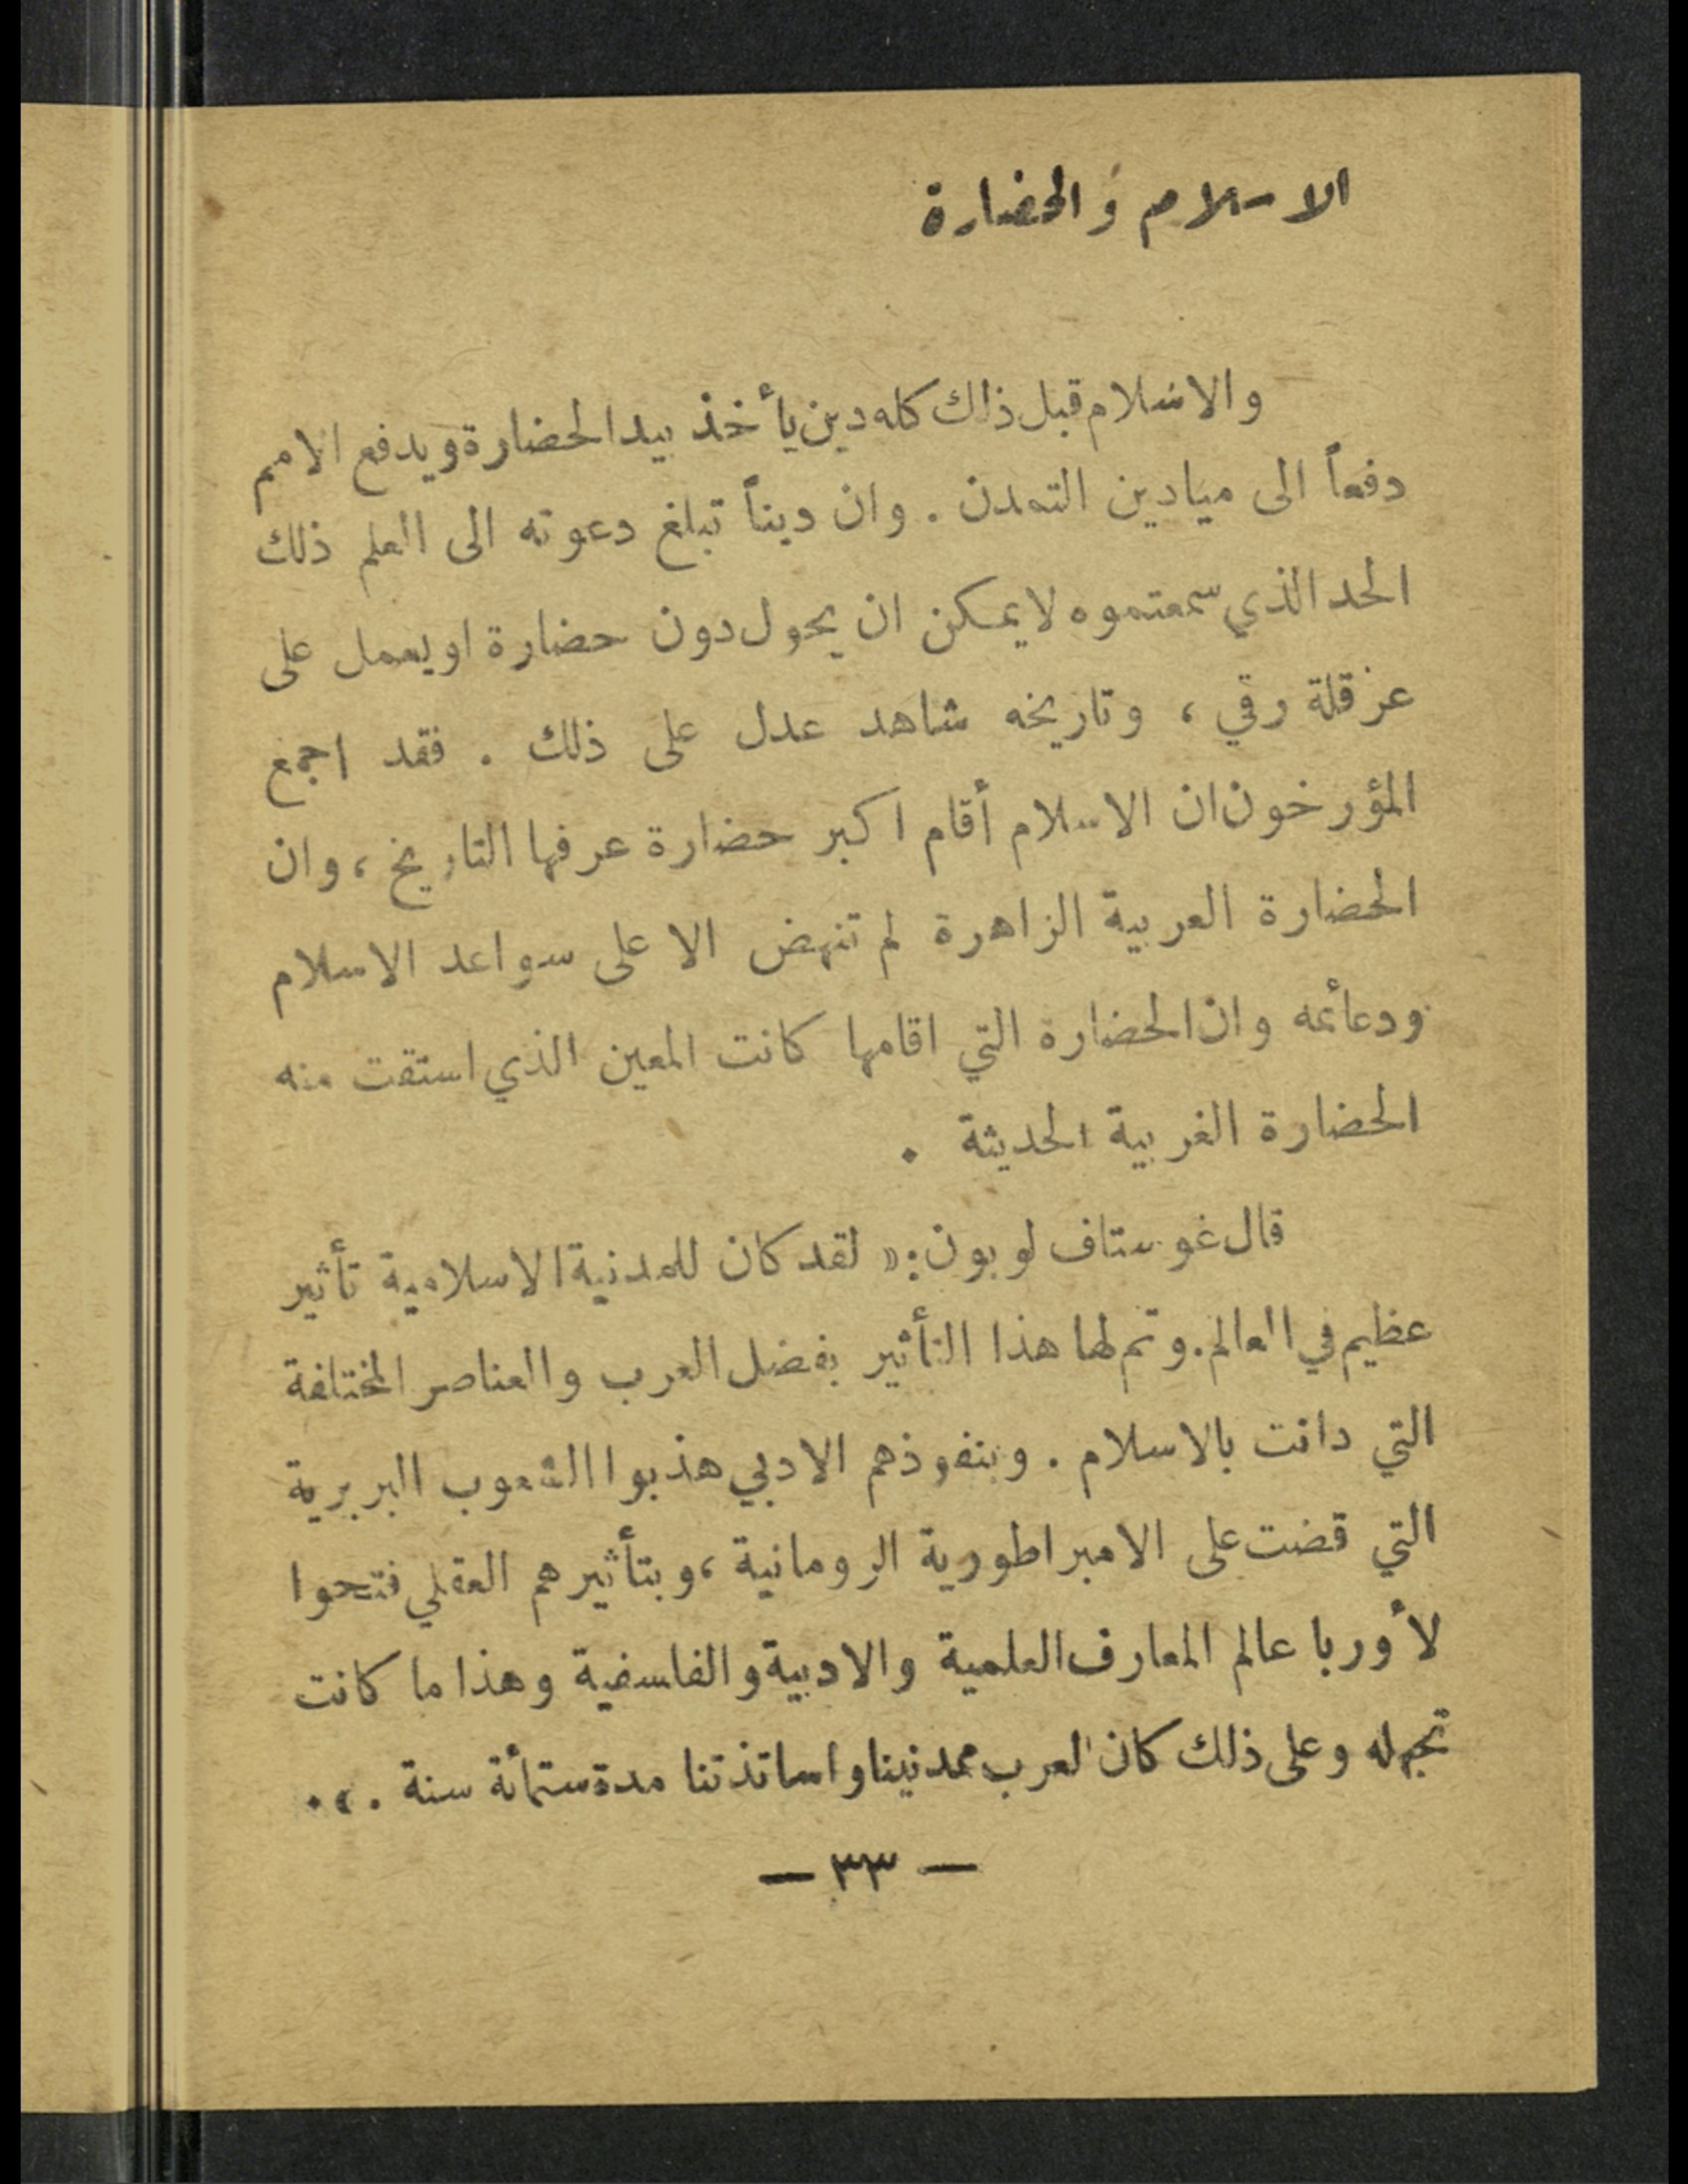 الاسلام والحضارة
والاسلام قبل ذلك كله دين يأخذ بيد الحضارة ويدفع الامم
دفعاً الى ميادين التمدن . وان ديناً تبلغ دعوته الى العلم ذلك
الحد الذي سمعتموه لا يمكن ان يحول دون حضارة او يعمل على
عرقلة رقي ، وتاريخه شاهد عدل على ذلك . فقد اجمع
المؤرخون ان الاسلام أقام اكبر حضارة عرفها التاريخ ، وان
الحضارة العربية الزاهرة لم تنهض الا على سواعد الاسلام
ودعائمه وان الحضارة التي اقامها كانت المعين الذي استقت منه
الحضارة الغربية الحديثة .
قال غوستاف لوبون : « لقد كان للمدنية الاسلامية تأثير
عظيم في العالم . وتم لها هذا التأثير بفضل العرب والعناصر المختلفة
التي دانت بالاسلام . وبنفوذهم الادبي هذبوا الشعوب البربرية
التي قضت على الامبراطورية الرومانية ، وبتأثيرهم العقلي فتحوا
لأوربا عالم المعارف العلمية والادبية والفلسفية وهذا ما كانت
تجهله وعلى ذلك كان العرب ممدنينا واساتذتنا مدة ستمائة سنة . » .
— ٣٣ —